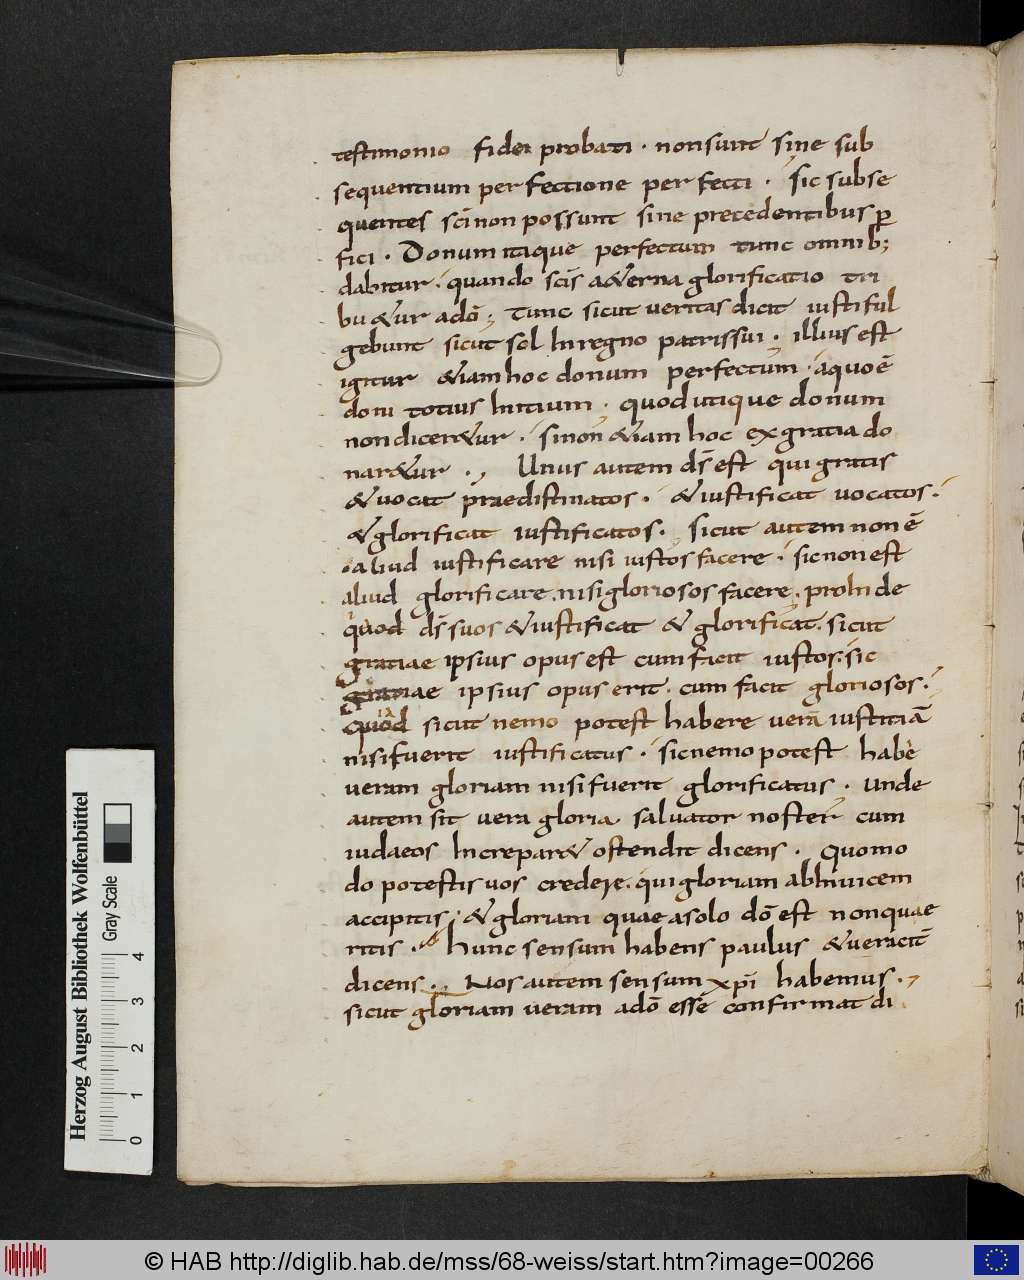 testimonio fidei probati · non sunt sine sub
sequentium perfectione perfecti · sic subse
quentes sc̄i non possunt sine precedentibus ꝑ
fici · Donum itaque perfectum tunc omnib;
dabitur · quando sc̄is a&erna glorificatio tri
bu&ur adō ; Tunc sicut veritas dicit iusti ful
gebunt sicut sol In regno patris sui · illius est
igitur &iam hoc donum perfectum · a quo ē
doni totius Initium · quod utique donum
non dicer&ur · si non &iam hoc ex gratia do
nar&ur · , Unus autem dS̄ est qui gratis
&uocat praedistinatos · &iustificat uocatos ·
&glorificat iustificatos · sicut autem non ē
aliud iustificare nisi iustos facere · sic non est
aliud glorificare · nisi gloriosos facere · proInde
quod dS̄ suos &iustificat & glorificat · sicut
gratiae ipsius opus est cum facit iustos : sic
gratiae ipsius opus erit · cum facit gloriosos ·
Quod sicut nemo potest habere uerā iustitiā
nisi fuerit iustificatus · sic nemo potest habē
ueram gloriam nisi fuerit glorificatus · unde
autem sit uera gloria saluator noster cum
iudaeos Increpar& ostendit dicens · Quomo
do potestis uos credere · qui gloriam abInuicem
accipitis · & gloriam quae a solo dō est non quae
ritis · hunc sensum habens paulus &ueracit̄
dicens · Nos autem sensum xp̄i habemus ·
sicut gloriam ueram adō esse confirmat di
Herzog August Bibliothek Wolfenbüttel
Gray Scale
0 1 2 3 4
© HAB http://diglib.hab.de/mss/68-weiss/start.htm?image=00266